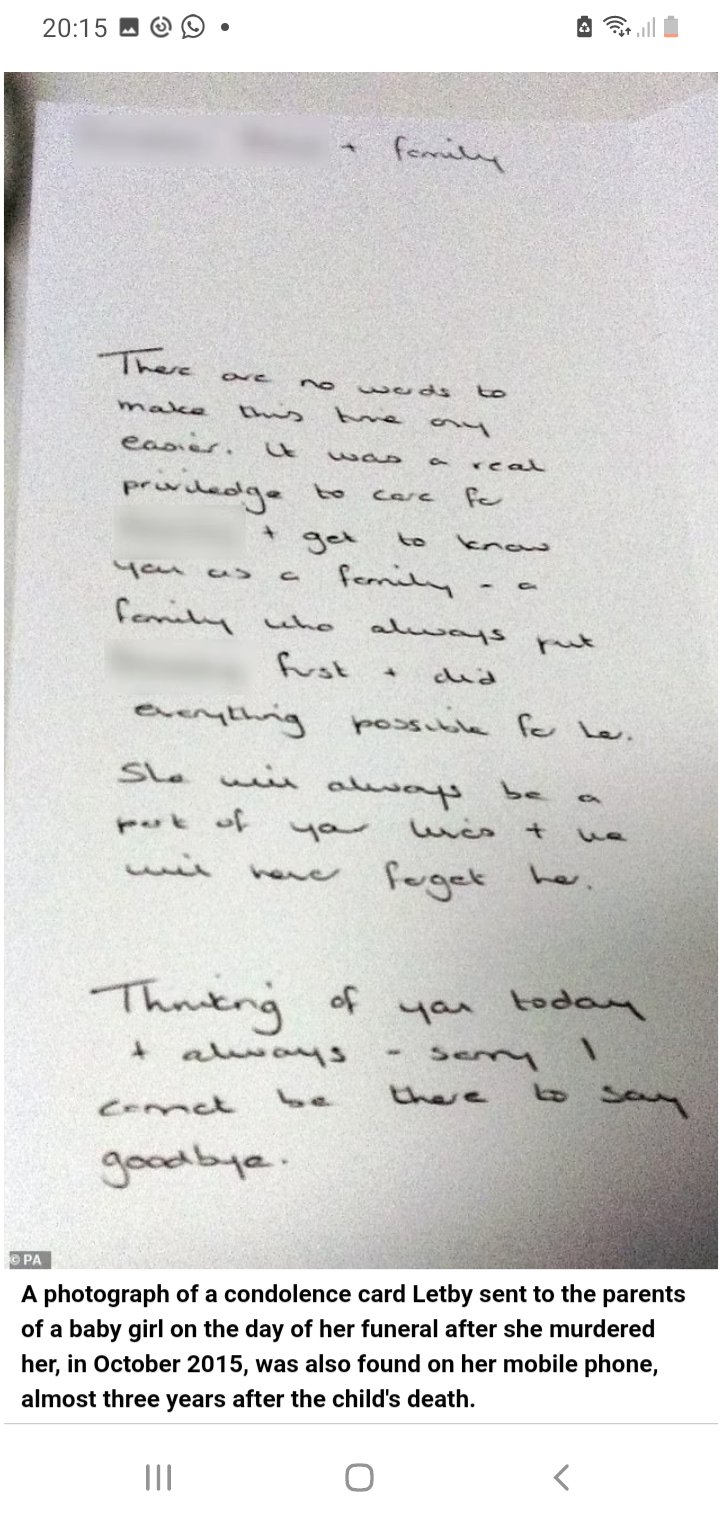 20:15
+ family
There are no words to
make this time any
easier. It was a real
priviledge to care for
+ get to know
you as a family - a
family who always put
first + did
everything possible for her.
She will always be a
part of your lives + we
will never forget her.
Thinking of you today
+ always - sorry I
cannot be there to say
goodbye.
© PA
A photograph of a condolence card Letby sent to the parents
of a baby girl on the day of her funeral after she murdered
her, in October 2015, was also found on her mobile phone,
almost three years after the child's death.